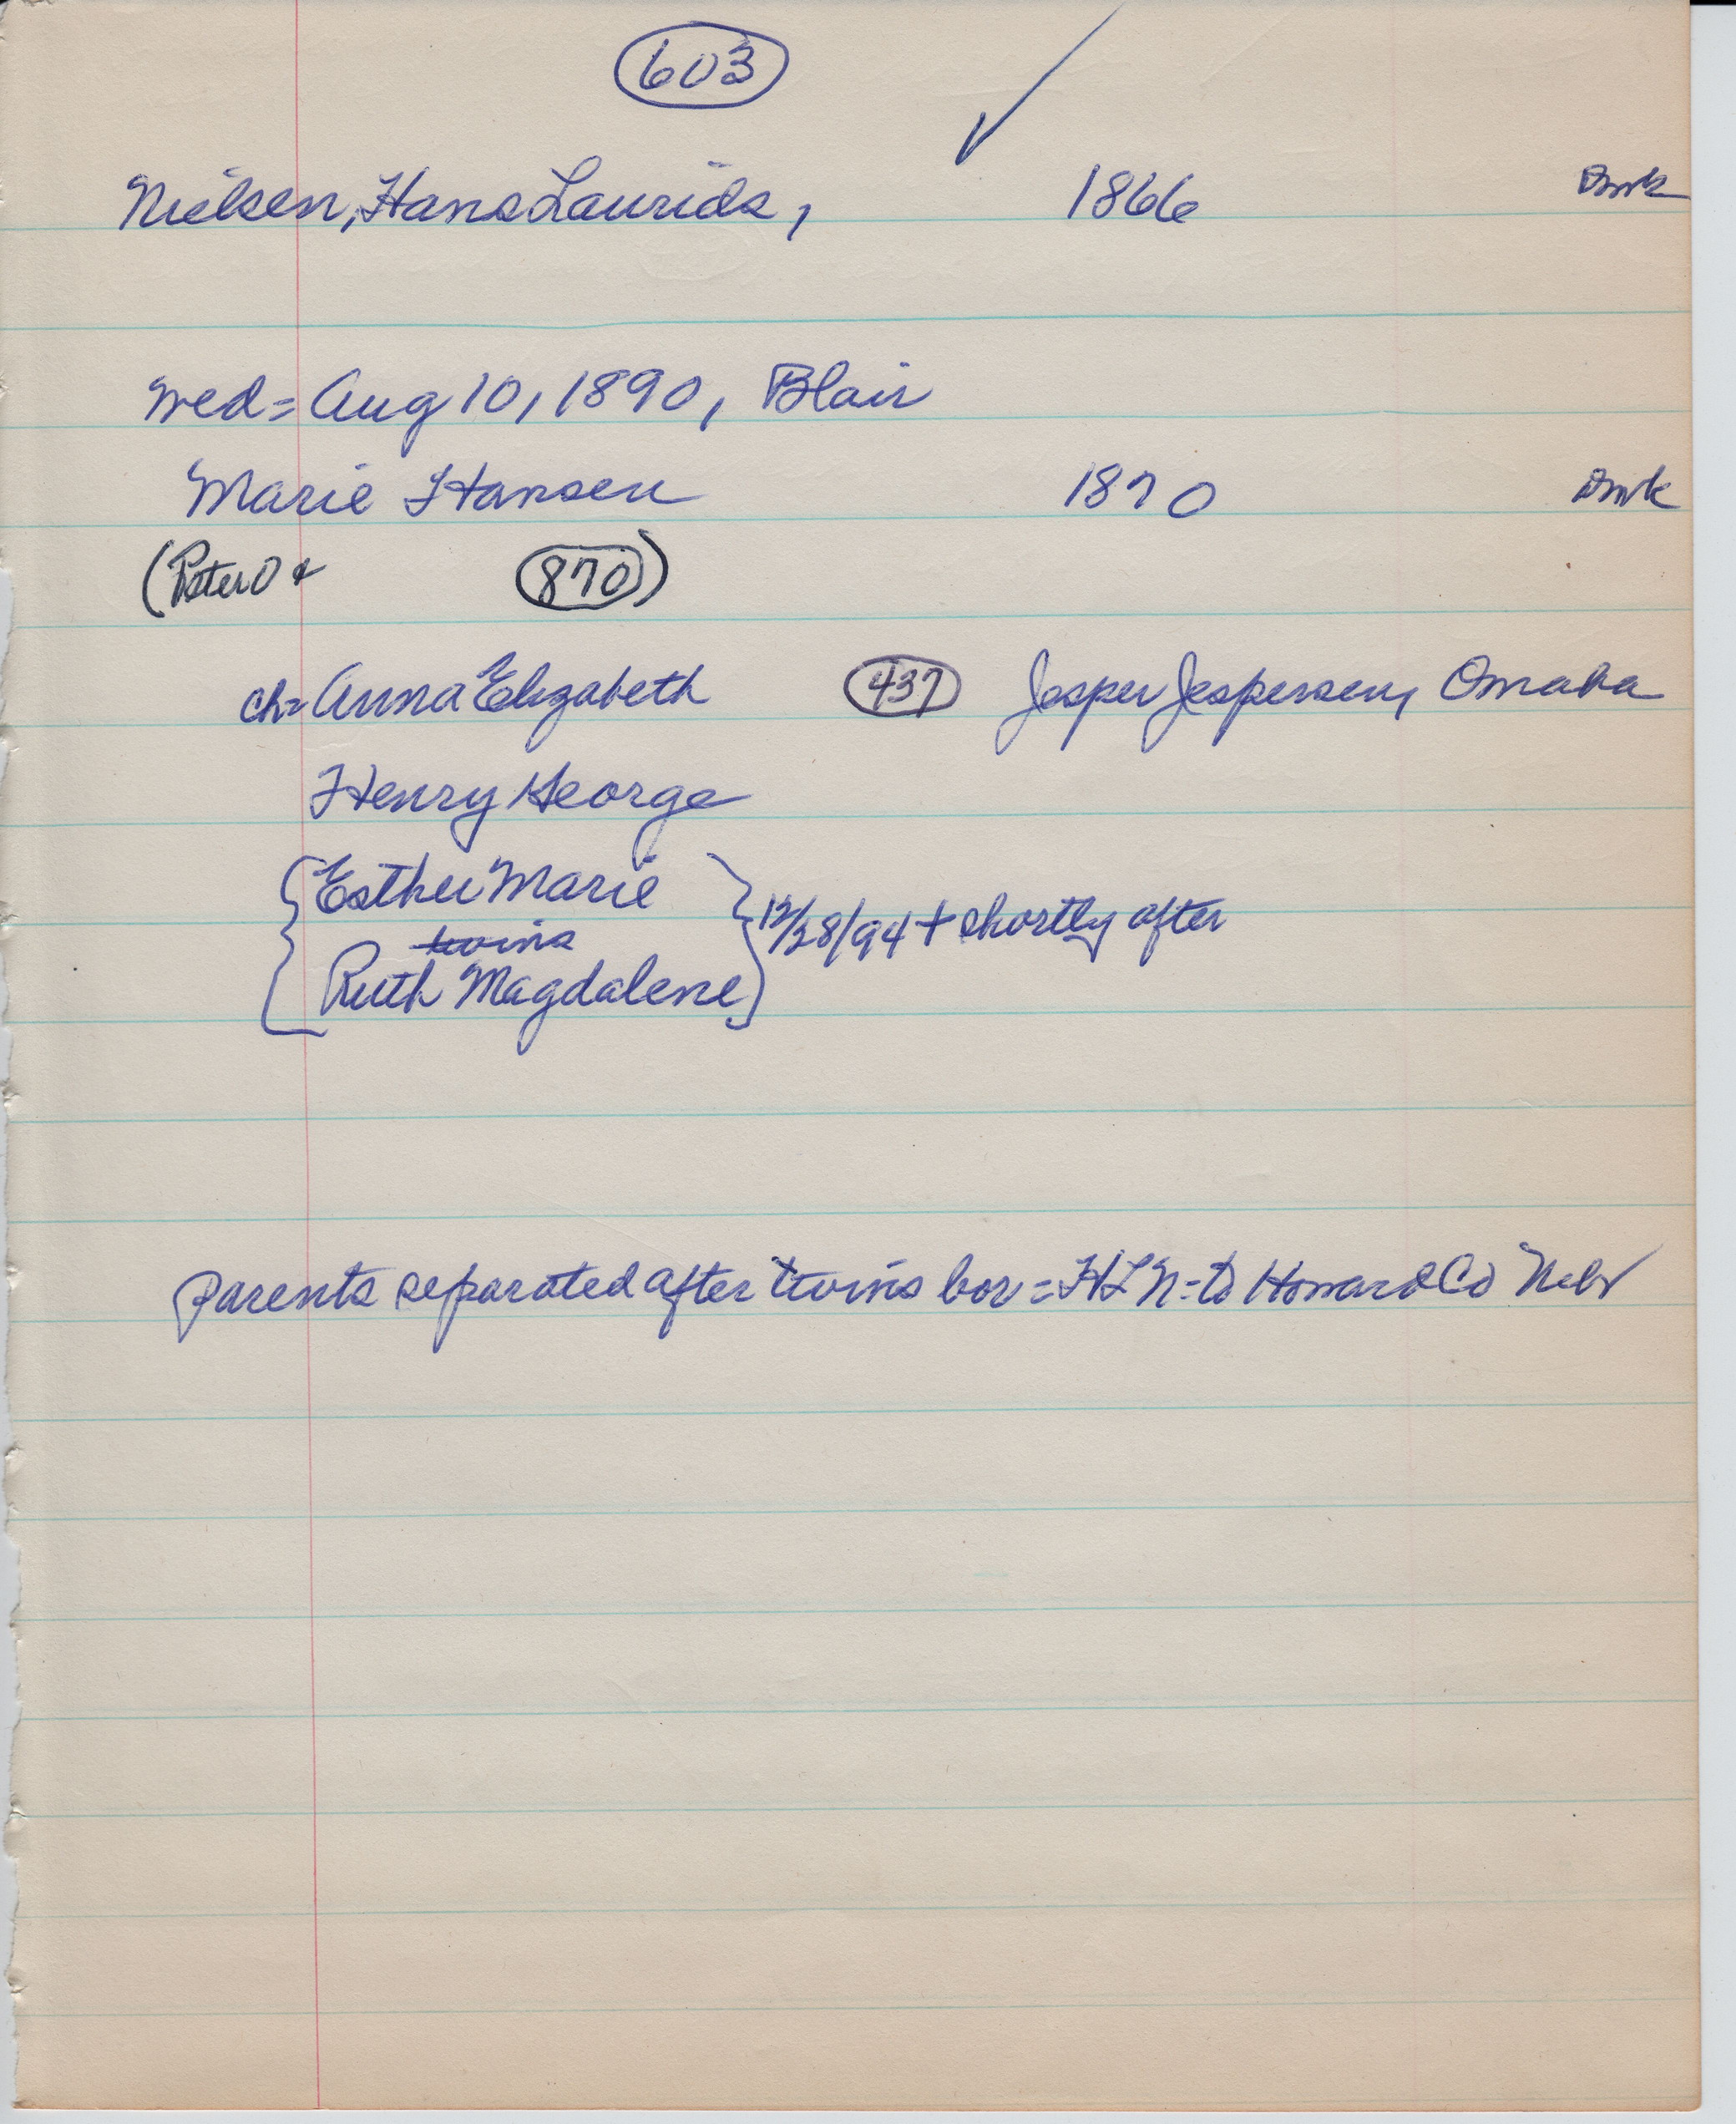 603
Nielsen, Hans Laurids, 1866 Dmk
Wed= Aug 10, 1890, Blair
Marie Hansen 1870 Dmk
(Peter O & 870)
ch= Anna Elizabeth 437 Jesper Jespersen, Omaha
Henry George
Esther Marie
twins
12/28/94 + shortly after
Ruth Magdalene
Parents separated after twins bor = HLN - to Howard Co Nebr